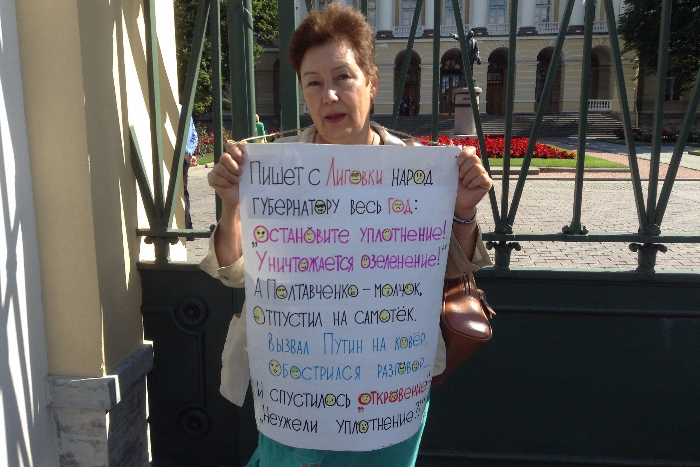 Пишет с Лиговки народ
губернатору весь год:
„Остановите уплотнение!
Уничтожается озеленение!"
А Полтавченко – молчок,
Отпустил на самотёк.
Вызвал Путин на ковёр,
Обострился разговор...
И спустилось „откровение":
„Неужели уплотнение?!"